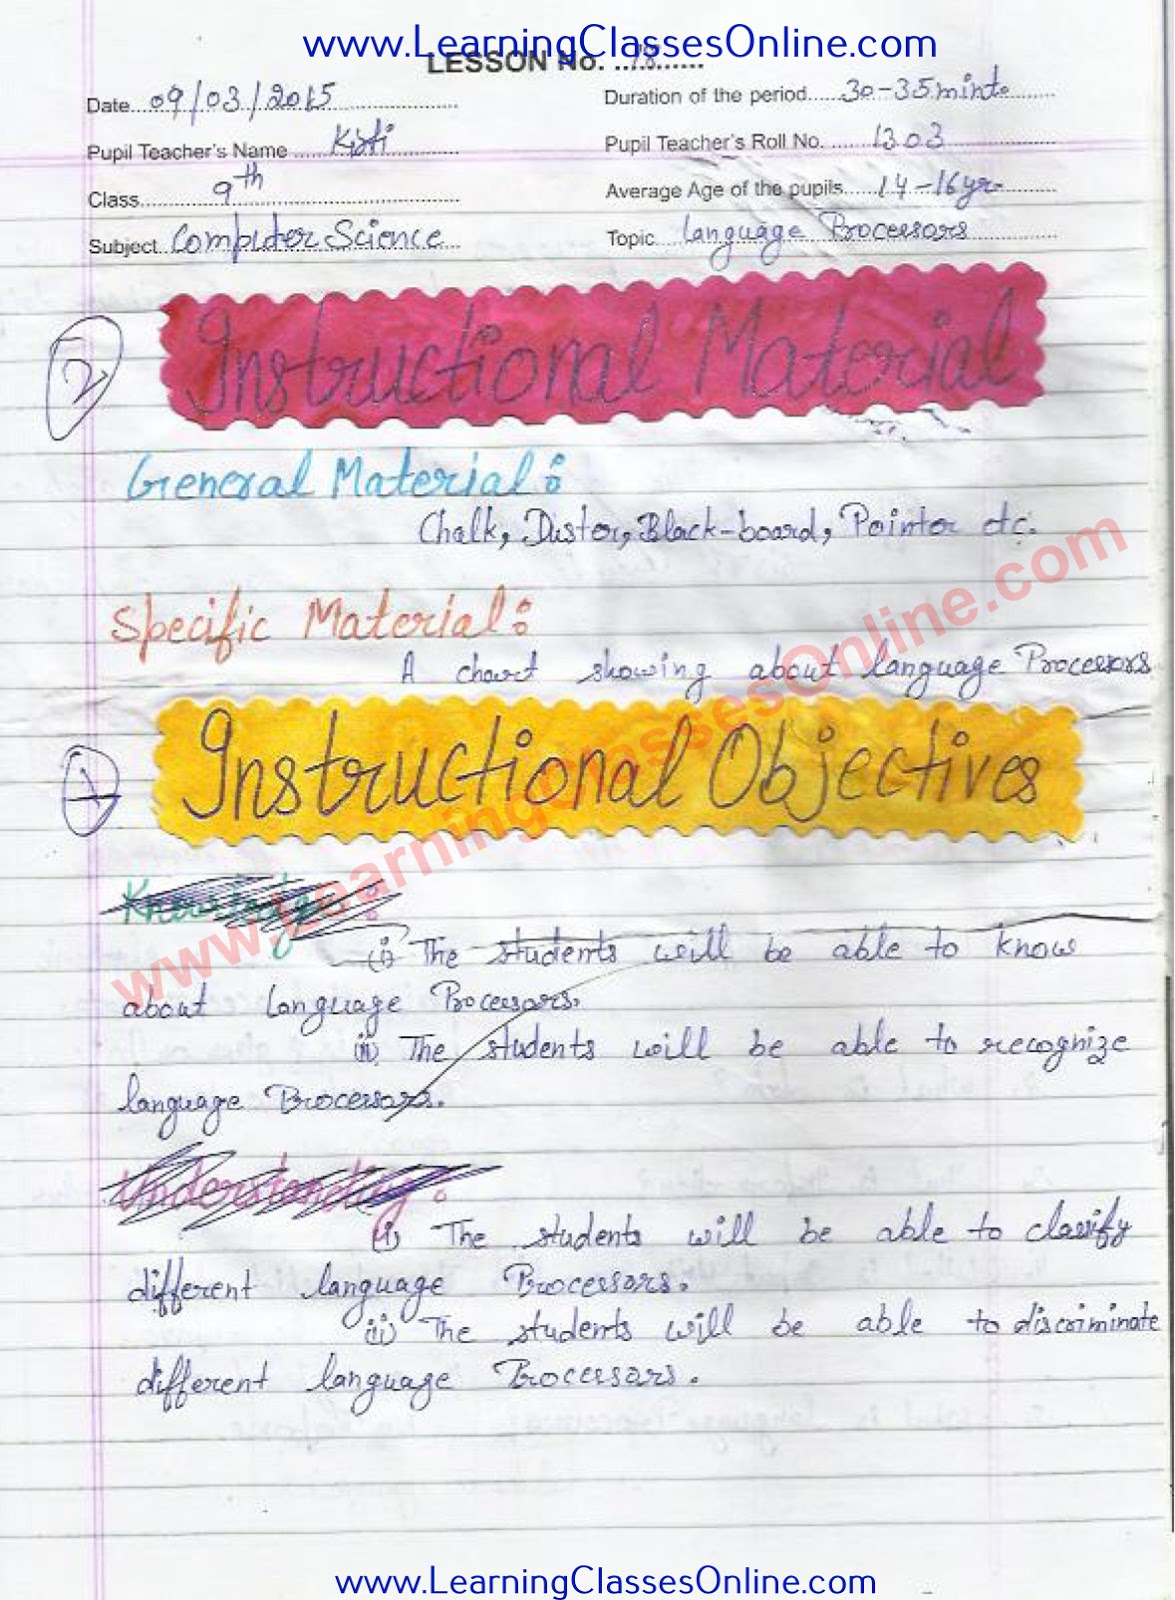 www.LearningClassesOnline.com
LESSON No. ...18...
Date 09/03/2015 Duration of the period 30-35 mints
Pupil Teacher's Name Pupil Teacher's Roll No. 1303
Class 9th Average Age of the pupils 14-16yr.
Subject Computer Science Topic Language Processors
2 Instructional Material
General Material:
Chalk, Duster, Black-board, Pointer etc.
Specific Material:
A chart showing about language Processors
1 Instructional Objectives
Knowledge:
(i) The students will be able to know
about language Processors.
(ii) The students will be able to recognize
language Processors.
Understanding:
(i) The students will be able to classify
different language Processors.
(ii) The students will be able to discriminate
different language Processors.
www.LearningClassesOnline.com
www.LearningClassesOnline.com